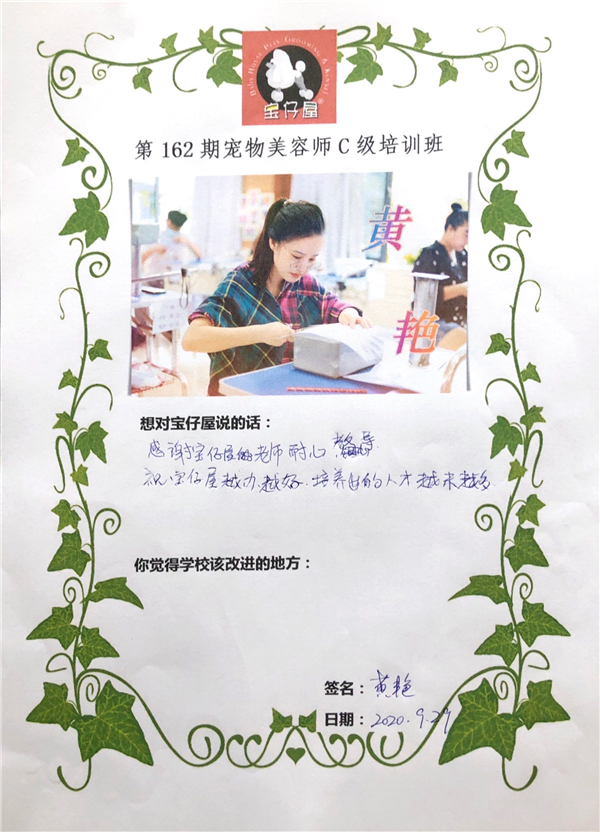 BABY HOUSE PETS GROOMING & KENNEL
宝仔屋
第 162 期宠物美容师 C 级培训班
黄
艳
想对宝仔屋说的话：
感谢宝仔屋的老师耐心 教导
祝宝仔屋越办越好.培养出的人才越来越多
你觉得学校该改进的地方：
签名：黄艳
日期：2020.9.27